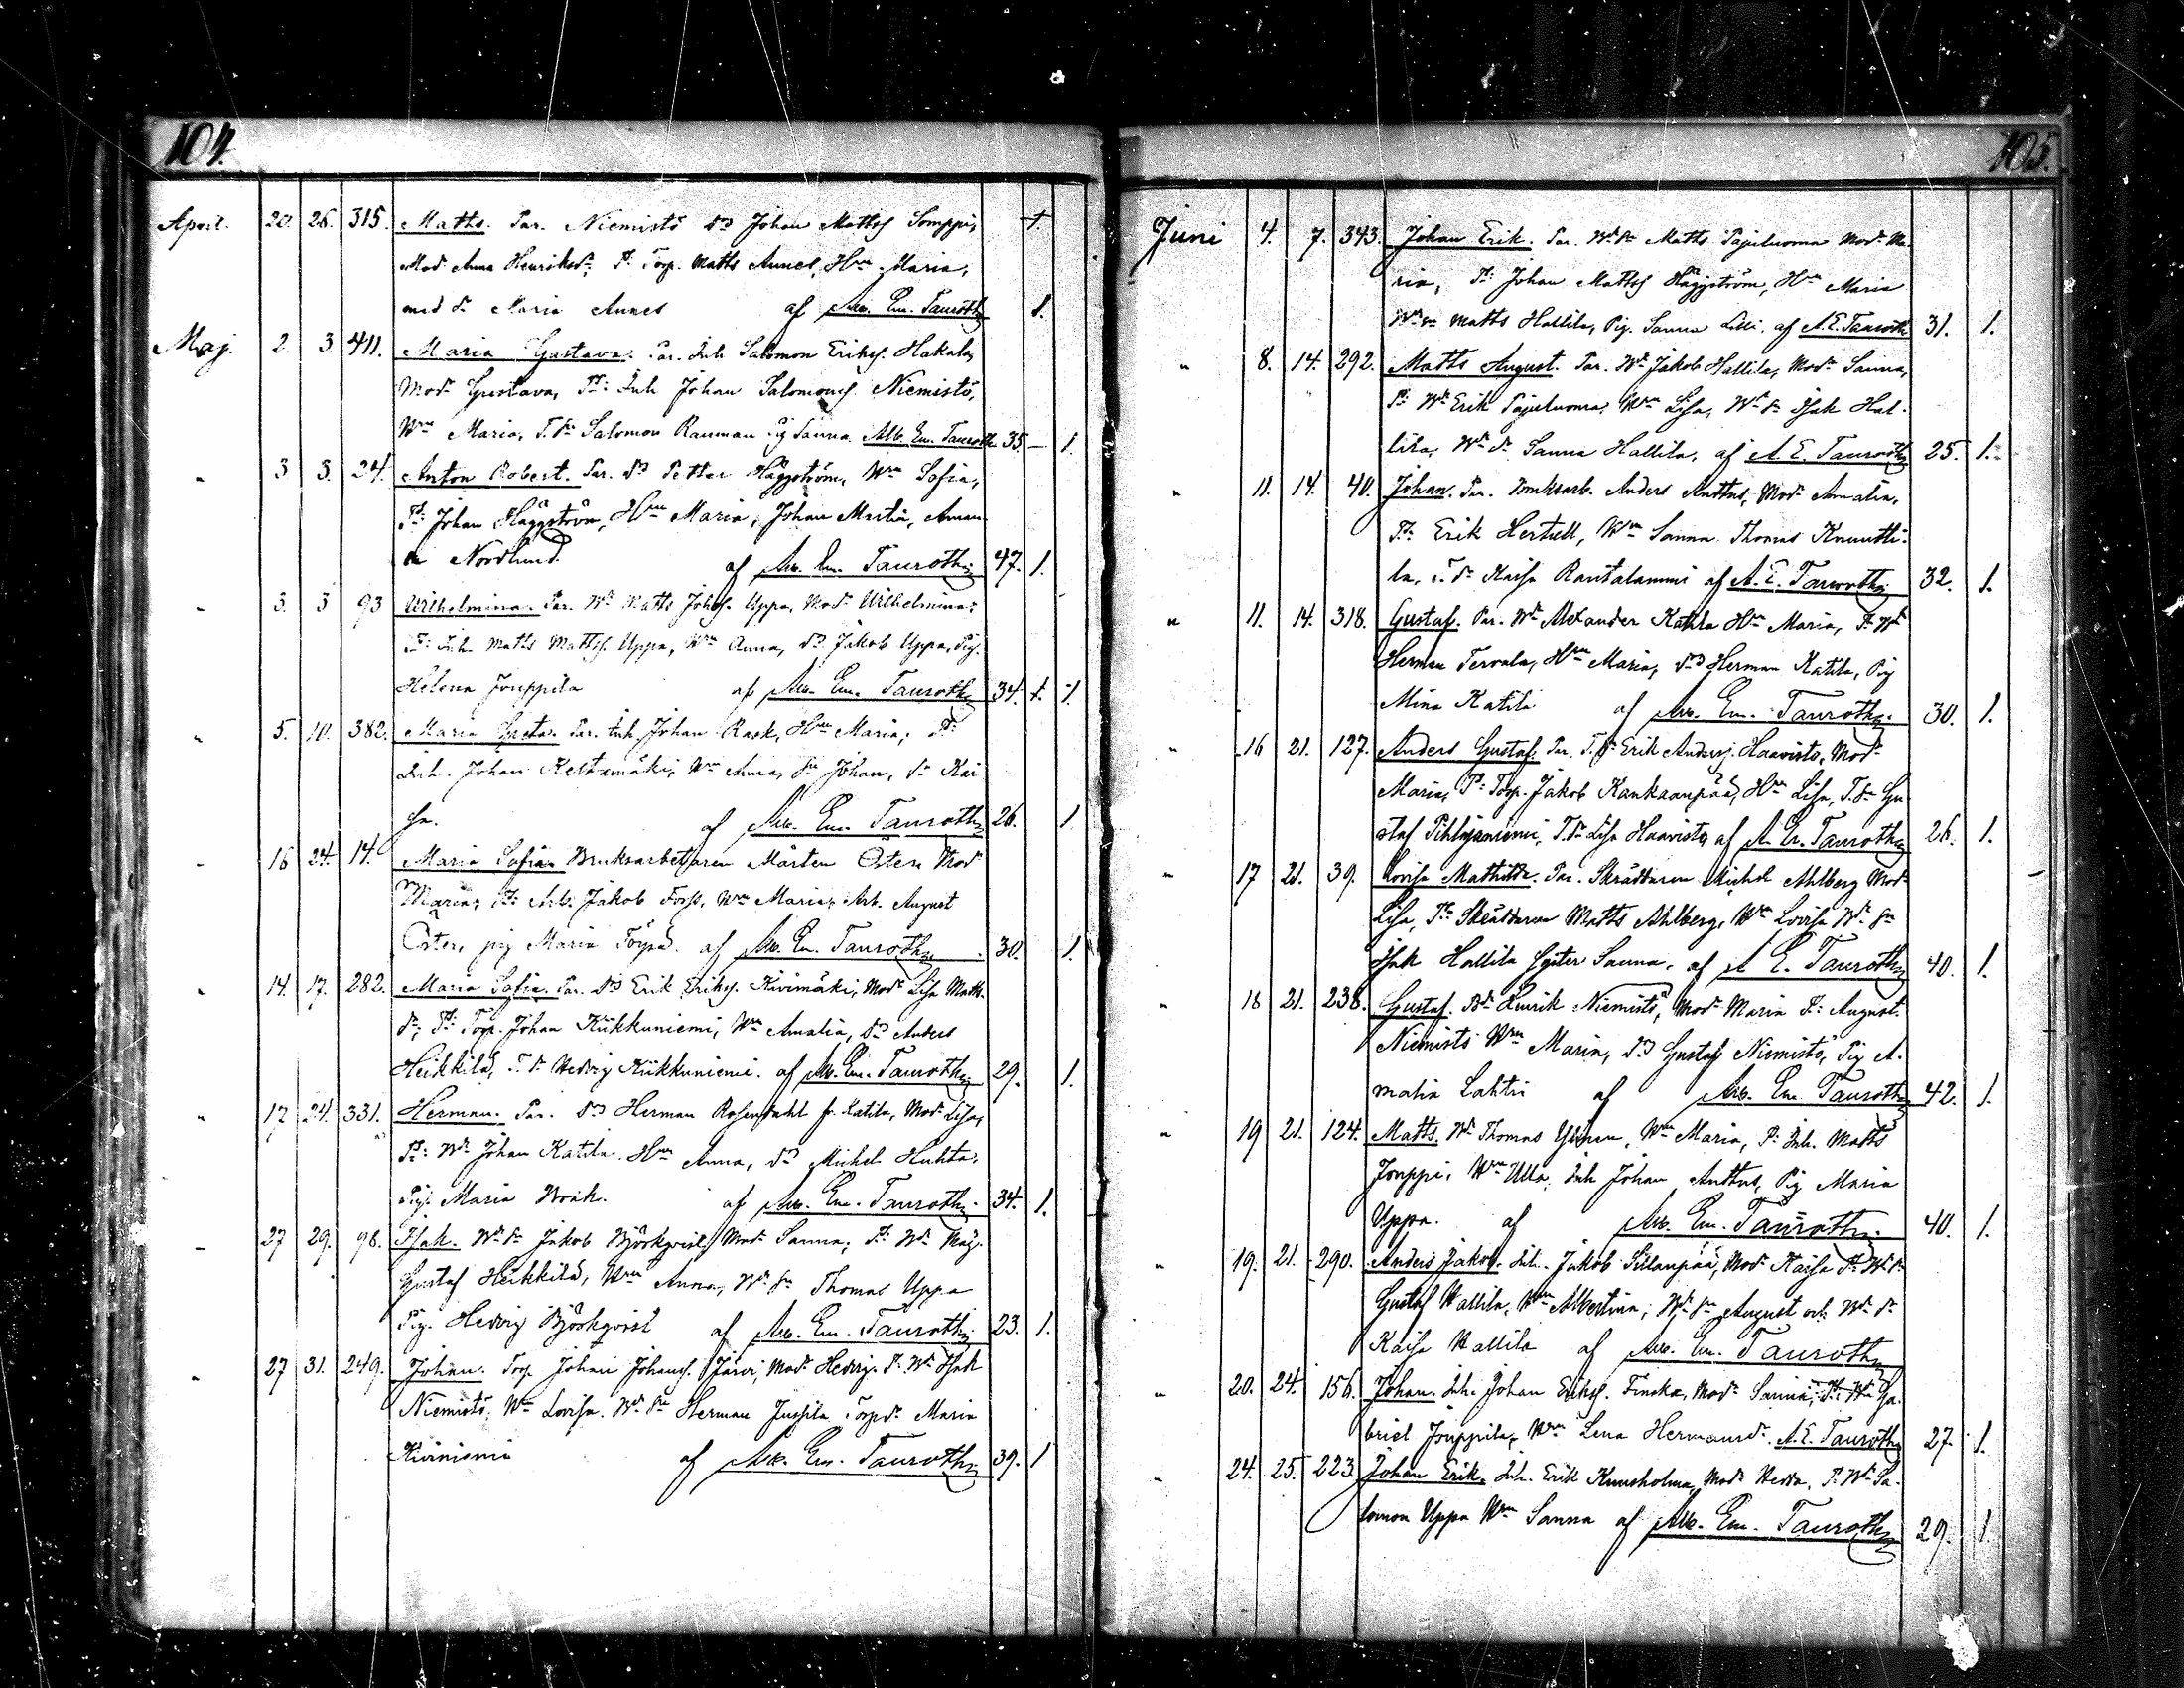 104.
April. 20. 26. 315. Matts. Par. Niemistö Sd Johan Mattsf Somppi,
Mod. Anna Henriksdr, Ft: Torp. Matts Annes, Hru Maria,
med dr Maria Annes af Arv. Em. Tauroth 1.
Maj. 2. 3. 411. Maria Gustava. Par. Inh Salomon Eriksf. Hakala,
Modr Gustava, Ft: Inh Johan Salomonsf. Niemistö,
Wru Maria, T. Sn Salomon Rauman Pig Sanna. Alb. Em. Tauroth 35 – 1.
„ 3 3. 24. Anton Robert. Par. Sd Petter Häggström, Wru Sofia,
Ft: Johan Häggström, Hru Maria, Johan Martin, Aman
da Nordlund. af Arv. Em. Tauroth 47. 1.
„ 3. 3 93 Wilhelmina. Par. Wd Matts Johsf. Uppa, Mod. Wilhelmina;
Ft: Inh. Matts Mattsf. Uppa, Wru Anna, Sd Jakob Uppa, Pig.
Helena Jouppila af Arv. Em. Tauroth 34. 1.
„ 5. 10. 382. Maria Greta. Par. Inh. Johan Rask, Hru Maria; Ft:
Inh. Johan Keltamäki, Wru Anna, Sn Johan, dr Kai
sa. af Arv. Em. Tauroth 26. 1
„ 16 24. 14. Maria Sofia. Bruksarbetaren Mårten Öster, Mod
Maria, Ft: Arb. Jakob Forss, Wru Maria, Arb. August
Öster, pig Maria Töysä. af Arv. Em. Tauroth 30. 1.
„ 14. 17. 282. Maria Sofia. Par. Sd Erik Eriksf. Kivimäki, Modr Lisa Matts
dr, Ft: Torp. Johan Kiikkuniemi, Wru Amalia, Sd Anders
Heikkilä, T. dr Hedvig Kiikkuniemi. af Arv. Em. Tauroth 29. 1.
„ 17 24. 331. Herman. Par. Sd Herman Rosendahl fr. Katila, Modr Lisa,
Ft: Wd Johan Katila. Hru Anna, Sd Michel Huhta,
Pig. Maria Wräk. af Arv. Em. Tauroth 34. 1.
„ 27 29. 98. Isak. Wd Sn Jakob Björkqvist, Modr Sanna; Ft: Wd Mäg.
Gustaf Heikkilä, Wru Anna, Wd Sn Thomas Uppa
Pig. Hedvig Björkqvist af Arv. Em. Tauroth 23. 1.
„ 27 31. 249. Johan. Torp. Johan Johansf. Järvi, Modr Hedvig. Ft. Wd Isak
Niemistö, Wru Lovisa. Wd Sn Herman Jussila Torpdr Maria
Kivinieme af Arv. Em. Tauroth 39. 1
105.
Juni 4. 7. 343. Johan Erik. Par. Wd Sn Matts Pajuluoma Modr Ma
ria, Ft: Johan Mattsf Häggström, Hru Maria
Wd Sn Matts Hallila, Pig. Sanna Lilli af A. E. Tauroth 31. 1.
„ 8. 14. 292. Matts August. Par. Wd Jakob Hallila, Modr Sanna,
Ft: Wd Erik Pajuluoma, Wru Lisa, Wd Sn Isak Hal-
lila, Wd dr Sanna Hallila, af A. E. Tauroth 25. 1.
„ 11. 14. 40. Johan. Par. Bruksarb. Anders Anttus, Modr Amalia,
Ft: Erik Hertell, Wru Sanna Thomas Knuutti-
la, T. dr Kaisa Rantalammi af A. E. Tauroth 32. 1.
„ 11. 14. 318. Gustaf. Par. Wd Alexander Katila Hru Maria, Ft Wd
Herman Tervala, Hru Maria, Sd Herman Katila, Pig
Mina Katila af Arv. Em. Tauroth. 30. 1.
„ 16 21. 127. Anders Gustaf. Par. T. Sn Erik Andersf. Haavisto, Modr
Maria, Ft: Torp. Jakob Kankaanpää, Hru Lisa, T. Sn Gu
staf Pihlajaniemi, T. dr Lisa Haavisto af A. Em. Tauroth 26. 1.
„ 17 21. 39. Lovisa Mathilda. Par. Skräddaren Michel Ahlberg Modr
Lisa, Ft: Skräddaren Matts Ahlberg, Wru Lovisa Wd Sn
Isak Hallila syster Sanna. af A E. Tauroth 40. 1.
„ 18 21. 238. Gustaf. Bd Henrik Niemistö, Modr Maria Ft: August
Niemistö Wru Maria, Sd Gustaf Niemistö, Pig A-
malia Lahti af Arv. Em Tauroth 42. 1.
„ 19 21. 124. Matts. Wd Thomas Ylinen, Wru Maria, Ft: Inh. Matts
Jouppi, Wru Ulla, Inh Johan Anttus, Pig Maria
Uppa. af Arv. Em. Tauroth. 40. 1.
„ 19. 21. 290. Anders Jakob. Inh. Jakob Sillanpää, Modr Kaisa Ft. Wd Sn
Gustaf Hallila, Wru Albertina, Wd Sn August och Wd dr
Kaisa Hallila af Arv. Em. Tauroth
„ 20. 24. 156. Johan. Inh. Johan Eriksf. Finska, Modr Sanna, Ft. Wd Ga-
briel Jouppila, Wru Lena Hermansdr. A. E. Tauroth 27. 1.
„ 24. 25. 223. Johan Erik. Inh. Erik Knusholma, Modr Hedda, Ft. Wd Sa-
lomon Uppa Wru Sanna af Arv. Em. Tauroth 29. 1.